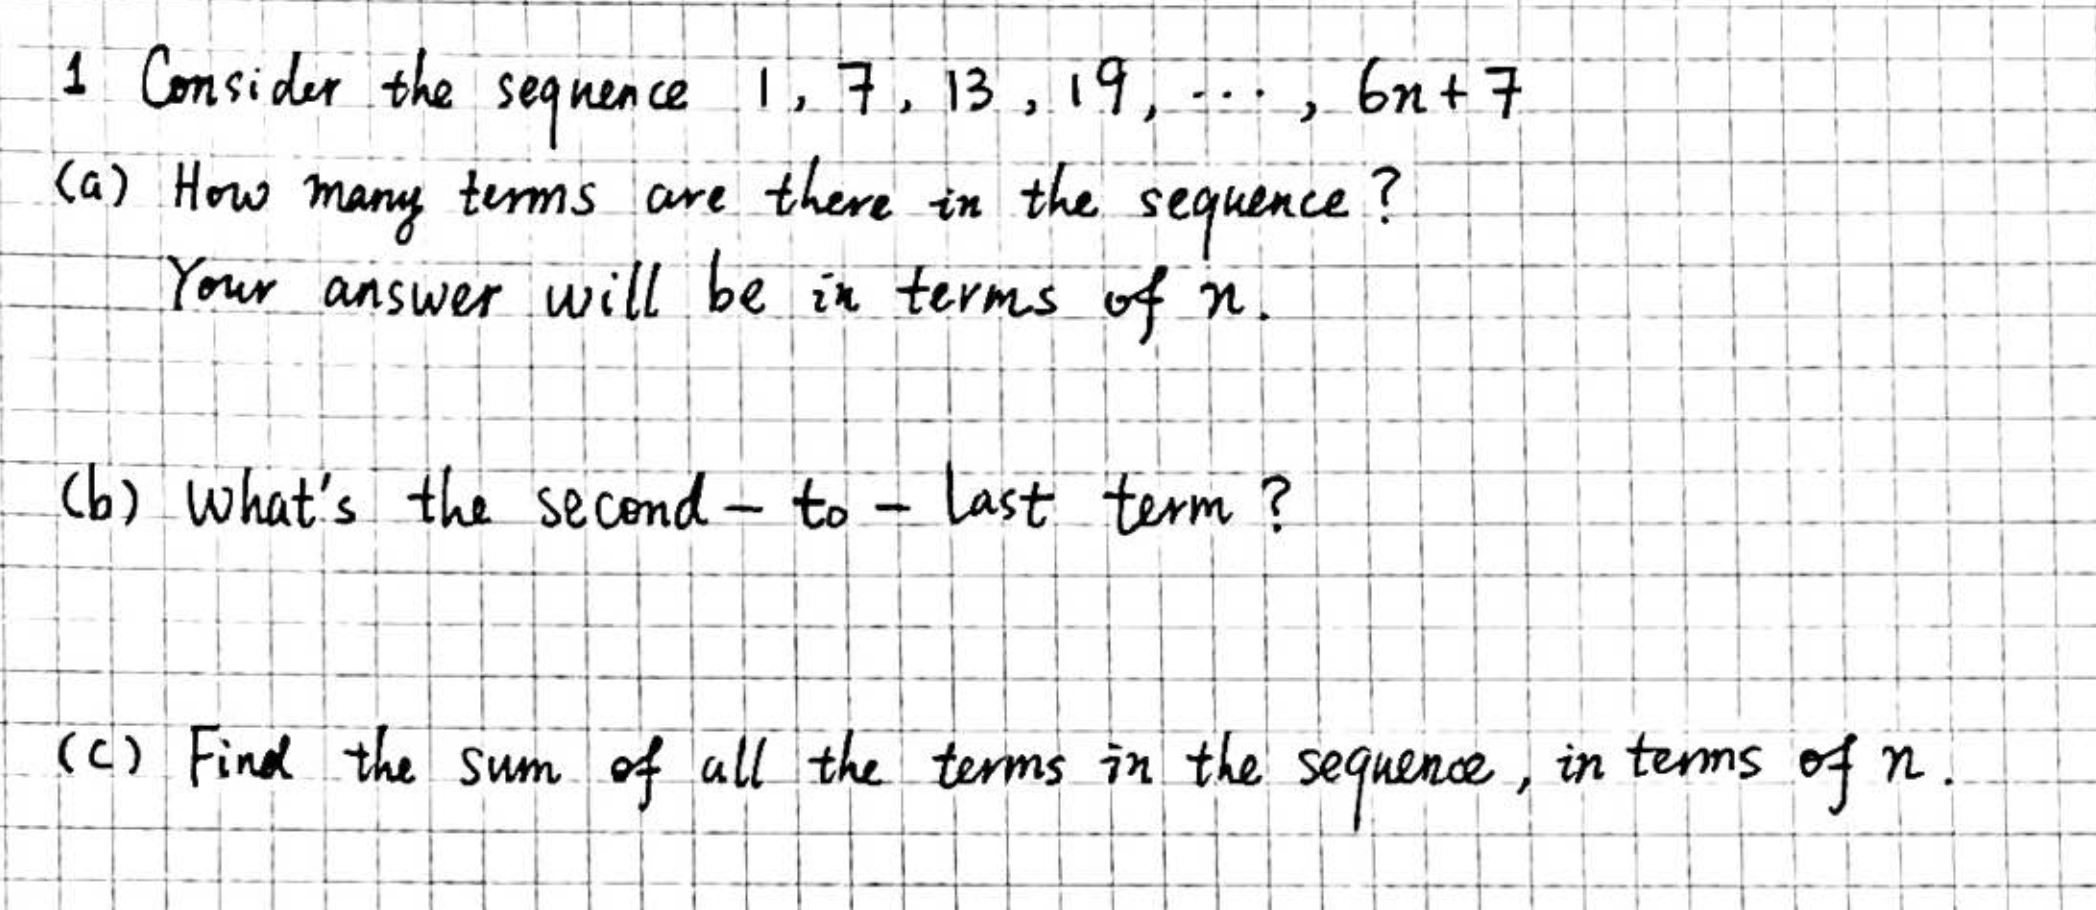 1 Consider the sequence 1, 7, 13, 19, ..., 6n+7
(a) How many terms are there in the sequence?
Your answer will be in terms of n.
(b) What's the second-to-last term?
(c) Find the sum of all the terms in the sequence, in terms of n.